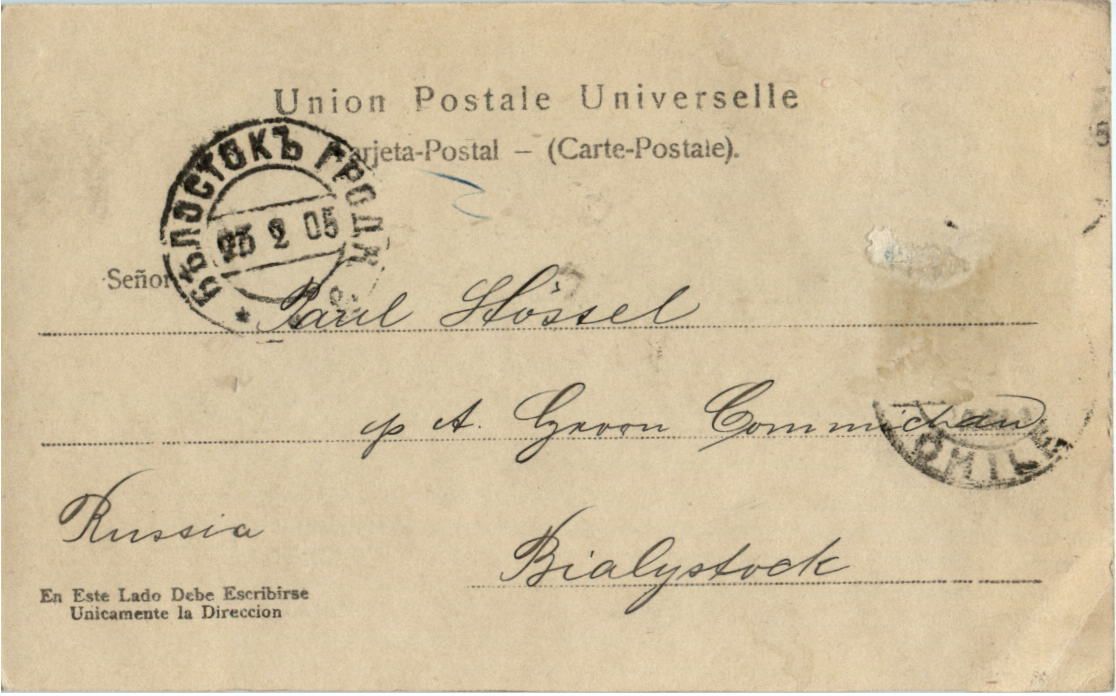 Union Postale Universelle
Tarjeta-Postal – (Carte-Postale).
БѢЛОСТОКЪ ГРОДН
2 05
Señor
Paul Stössel
p A. Gvon Commichau
Russia
Bialystock
CHILE
En Este Lado Debe Escribirse
Unicamente la Direccion